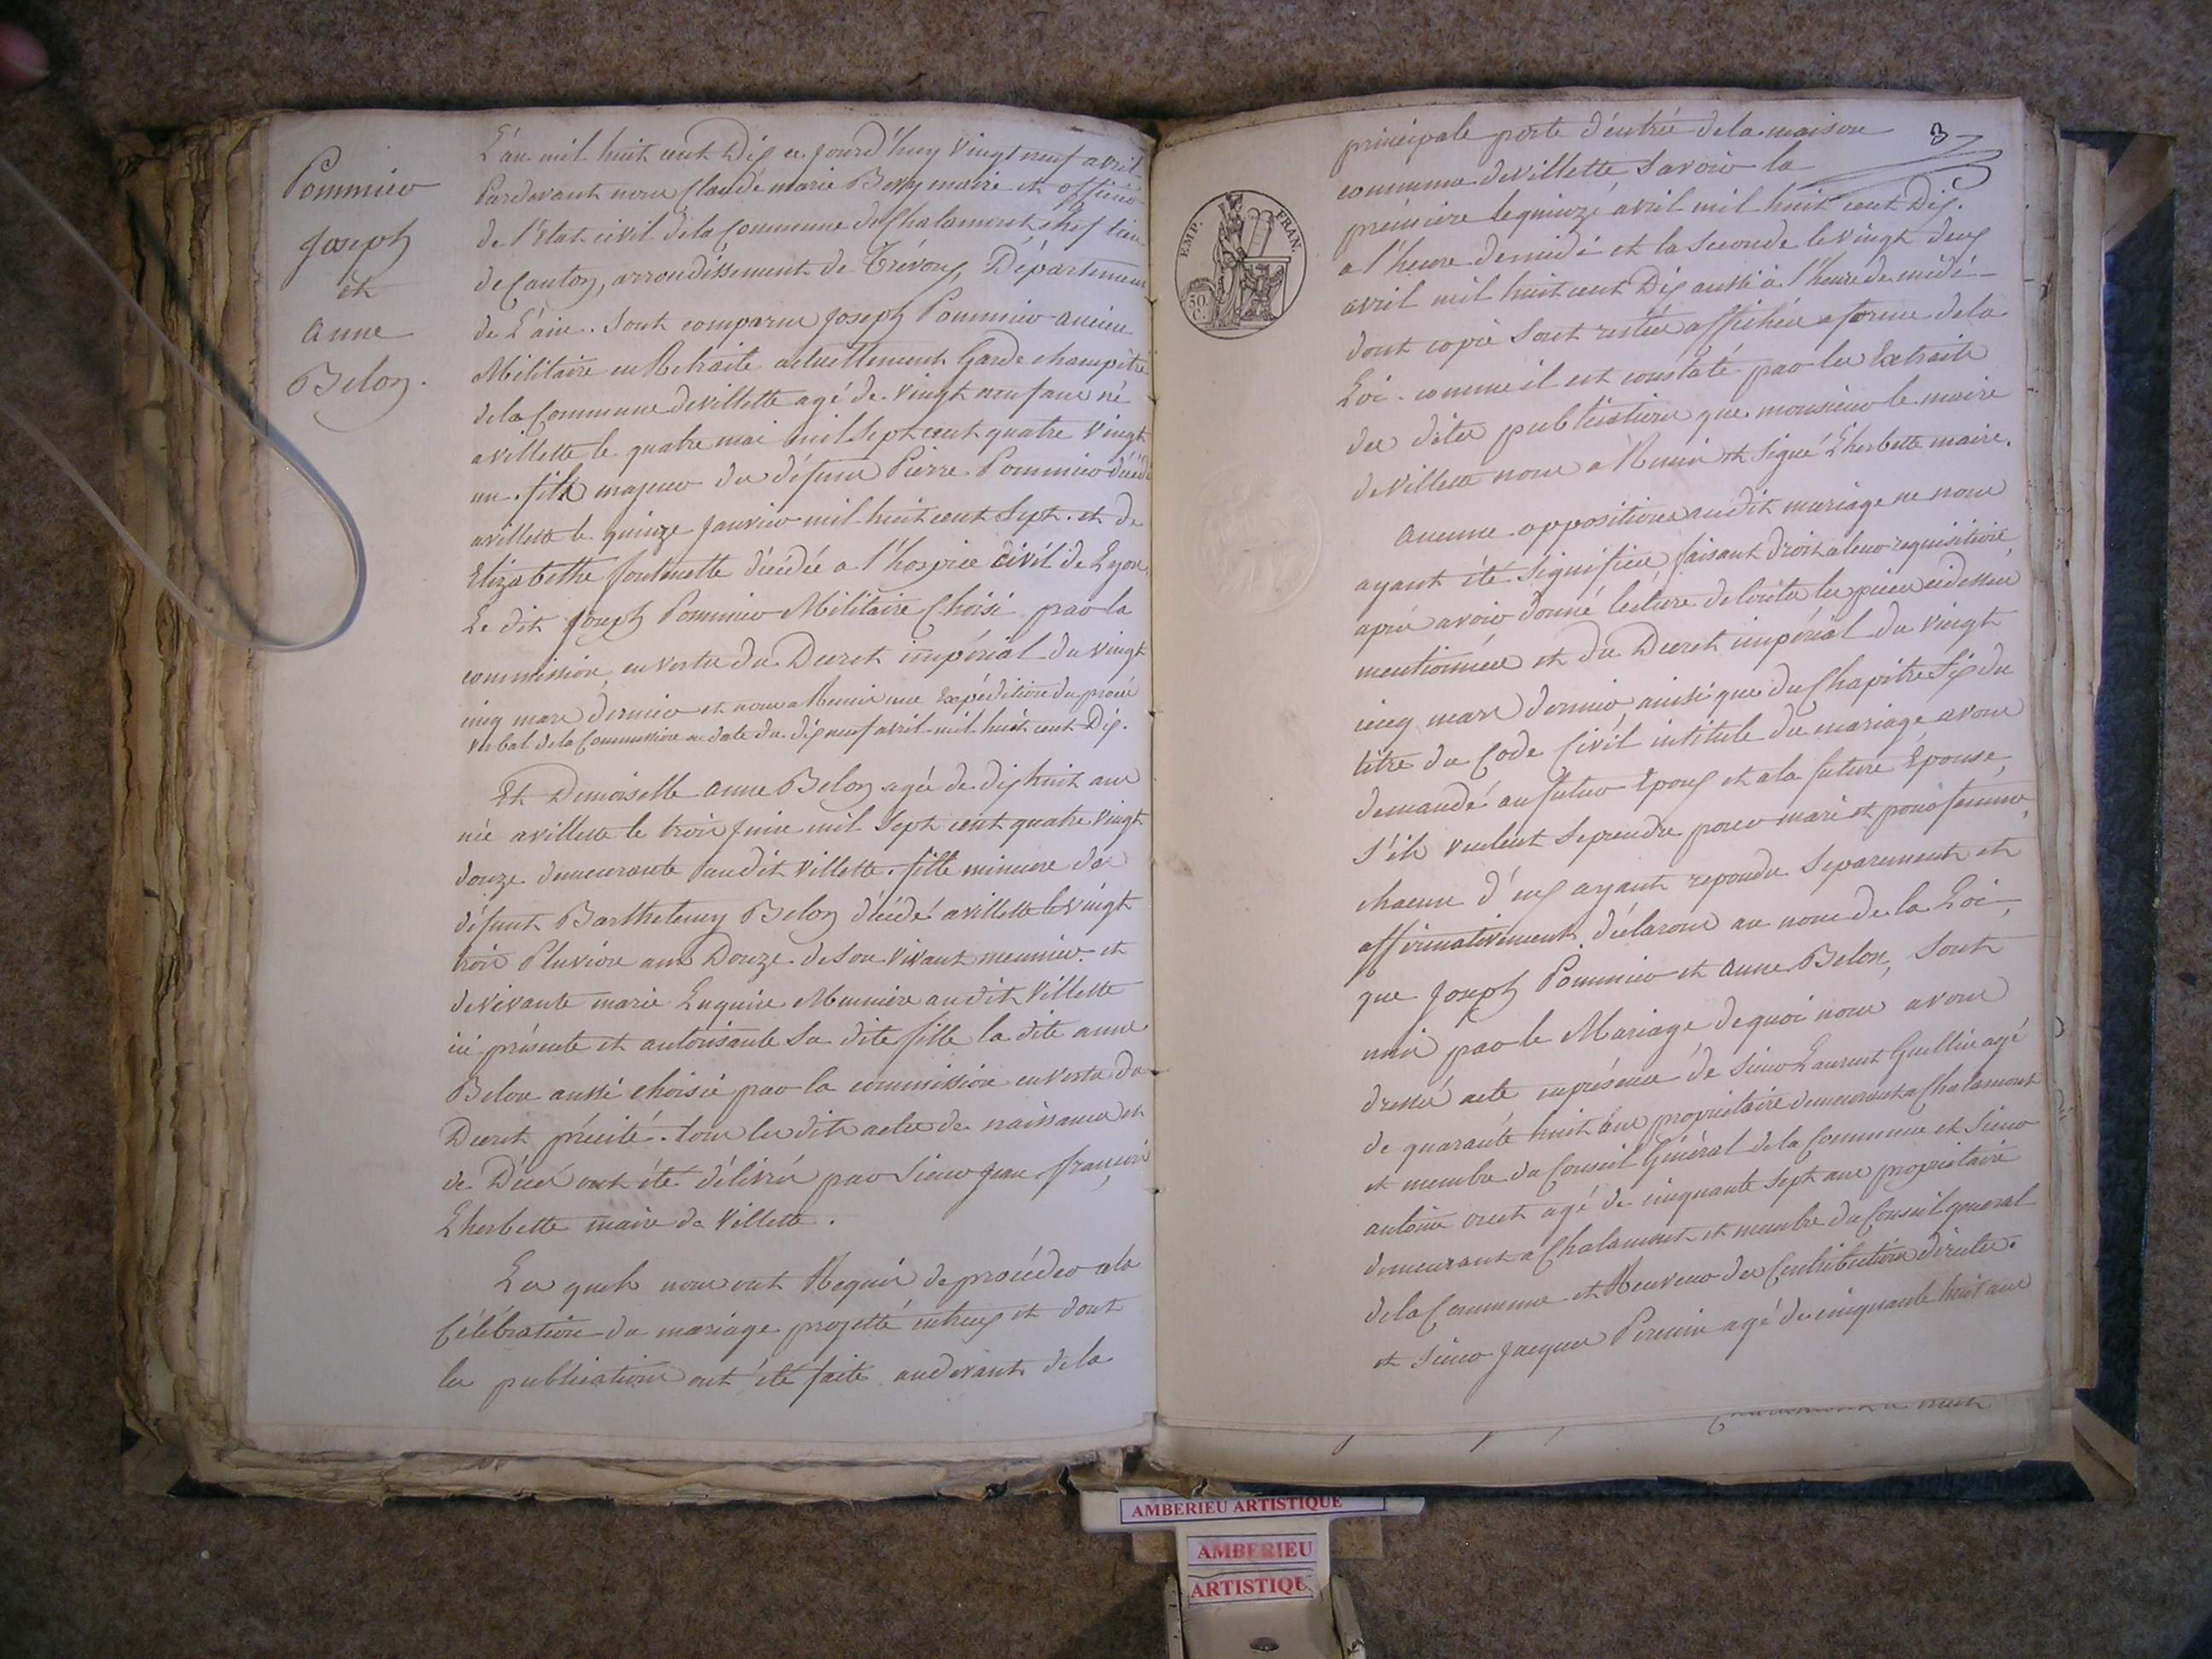 Pommier
Joseph
et
anne
Belon.
L'an mil huit cent Dix ce jourd'huy vingt neuf avril
Pardevant nous Claude marie Bevy maire et officier
de l'Etat civil dela Commune de Chalamont chef lieu
de Canton, arrondissement de Trévoux, Département
de L'ain. Sont comparus Joseph Pommier ancien
Militaire en Retraite actuellement Garde champêtre
dela Commune de villette agé de vingt neuf ans né
a villette le quatre mai mil sept cent quatre vingt
un. fils majeur de défunt Pierre Pommier décédé
a villette le quinze janvier mil huit cent sept. et de
Elizabethe fontenette décédée a l'hospice civil de Lyon.
Le dit Joseph Pommier Militaire Choisi par la
commission, en vertu du Decret impérial du vingt
cinq mars dernier et nous a Remis une Expédition du procès
verbal dela Commission en date du dix neuf avril mil huit cent Dix.
Et Demoiselle anne Belon agée de dix huit ans
née a villette le trois juin mil sept cent quatre vingt
douze demeurante audit villette. fille mineure de
défunt Barthelemy Belon décédé a villette le vingt
trois Pluviose an Douze de son vivant meunier. et
de vivante marie Euquise Meunière audit villette
ici présente et autorisante sa dite fille la dite anne
Belon aussi choisie par la commission en vertu du
Decret précité. tous les dits actes de naissance et
de Décès ont été délivrés par Sieur Jean françois
Lherbette maire de villette.
Les quels nous ont Requis de procéder a la
Célébration du mariage projetté entreux et dont
les publications ont été faites au devant dela
3
principale porte d'entrée dela maison
commune de villette savoir la
première le quinze avril mil huit cent Dix.
a l'heure de midi et la seconde le vingt deux
avril mil huit cent Dix aussi à l'heure de midi
dont copie sont restées affichées a forme dela
Loi. comme il est constaté par les Extraits
des dites publications que monsieur le maire
de villette nous a Remis et signé Lherbette maire.
aucune opposition audit mariage ne nous
ayant été signifiée, faisant droit a leur requisition,
après avoir donné lecture de toutes les pièces ci dessus
mentionnées et du Decret impérial du vingt
cinq mars dernier, ainsi que du Chapitre six du
titre du Code Civil intitulé du mariage avons
demandé au futur Epoux et a la future Epouse,
s'ils veulent se prendre pour mari et pour femme,
chacun d'eux ayant repondu separement et
affirmativement. déclarons au nom de la Loi,
que Joseph Pommier et anne Belon, Sont
unis par le Mariage, de quoi nous avons
dressé acte en présence de sieur Laurent Guillin agé
de quarante huit ans propriétaire demeurant a Chalamont
et membre du Conseil Général dela Commune et Sieur
antoine orset agé de cinquante sept ans propriétaire
demeurant a Chalamont et membre du Conseil general
dela Commune et Receveur des Contributions directes.
et sieur Jacques Perenin agé de cinquante huit ans
EMP. FRAN.
50.
C.
AMBERIEU ARTISTIQUE
AMBERIEU
ARTISTIQU